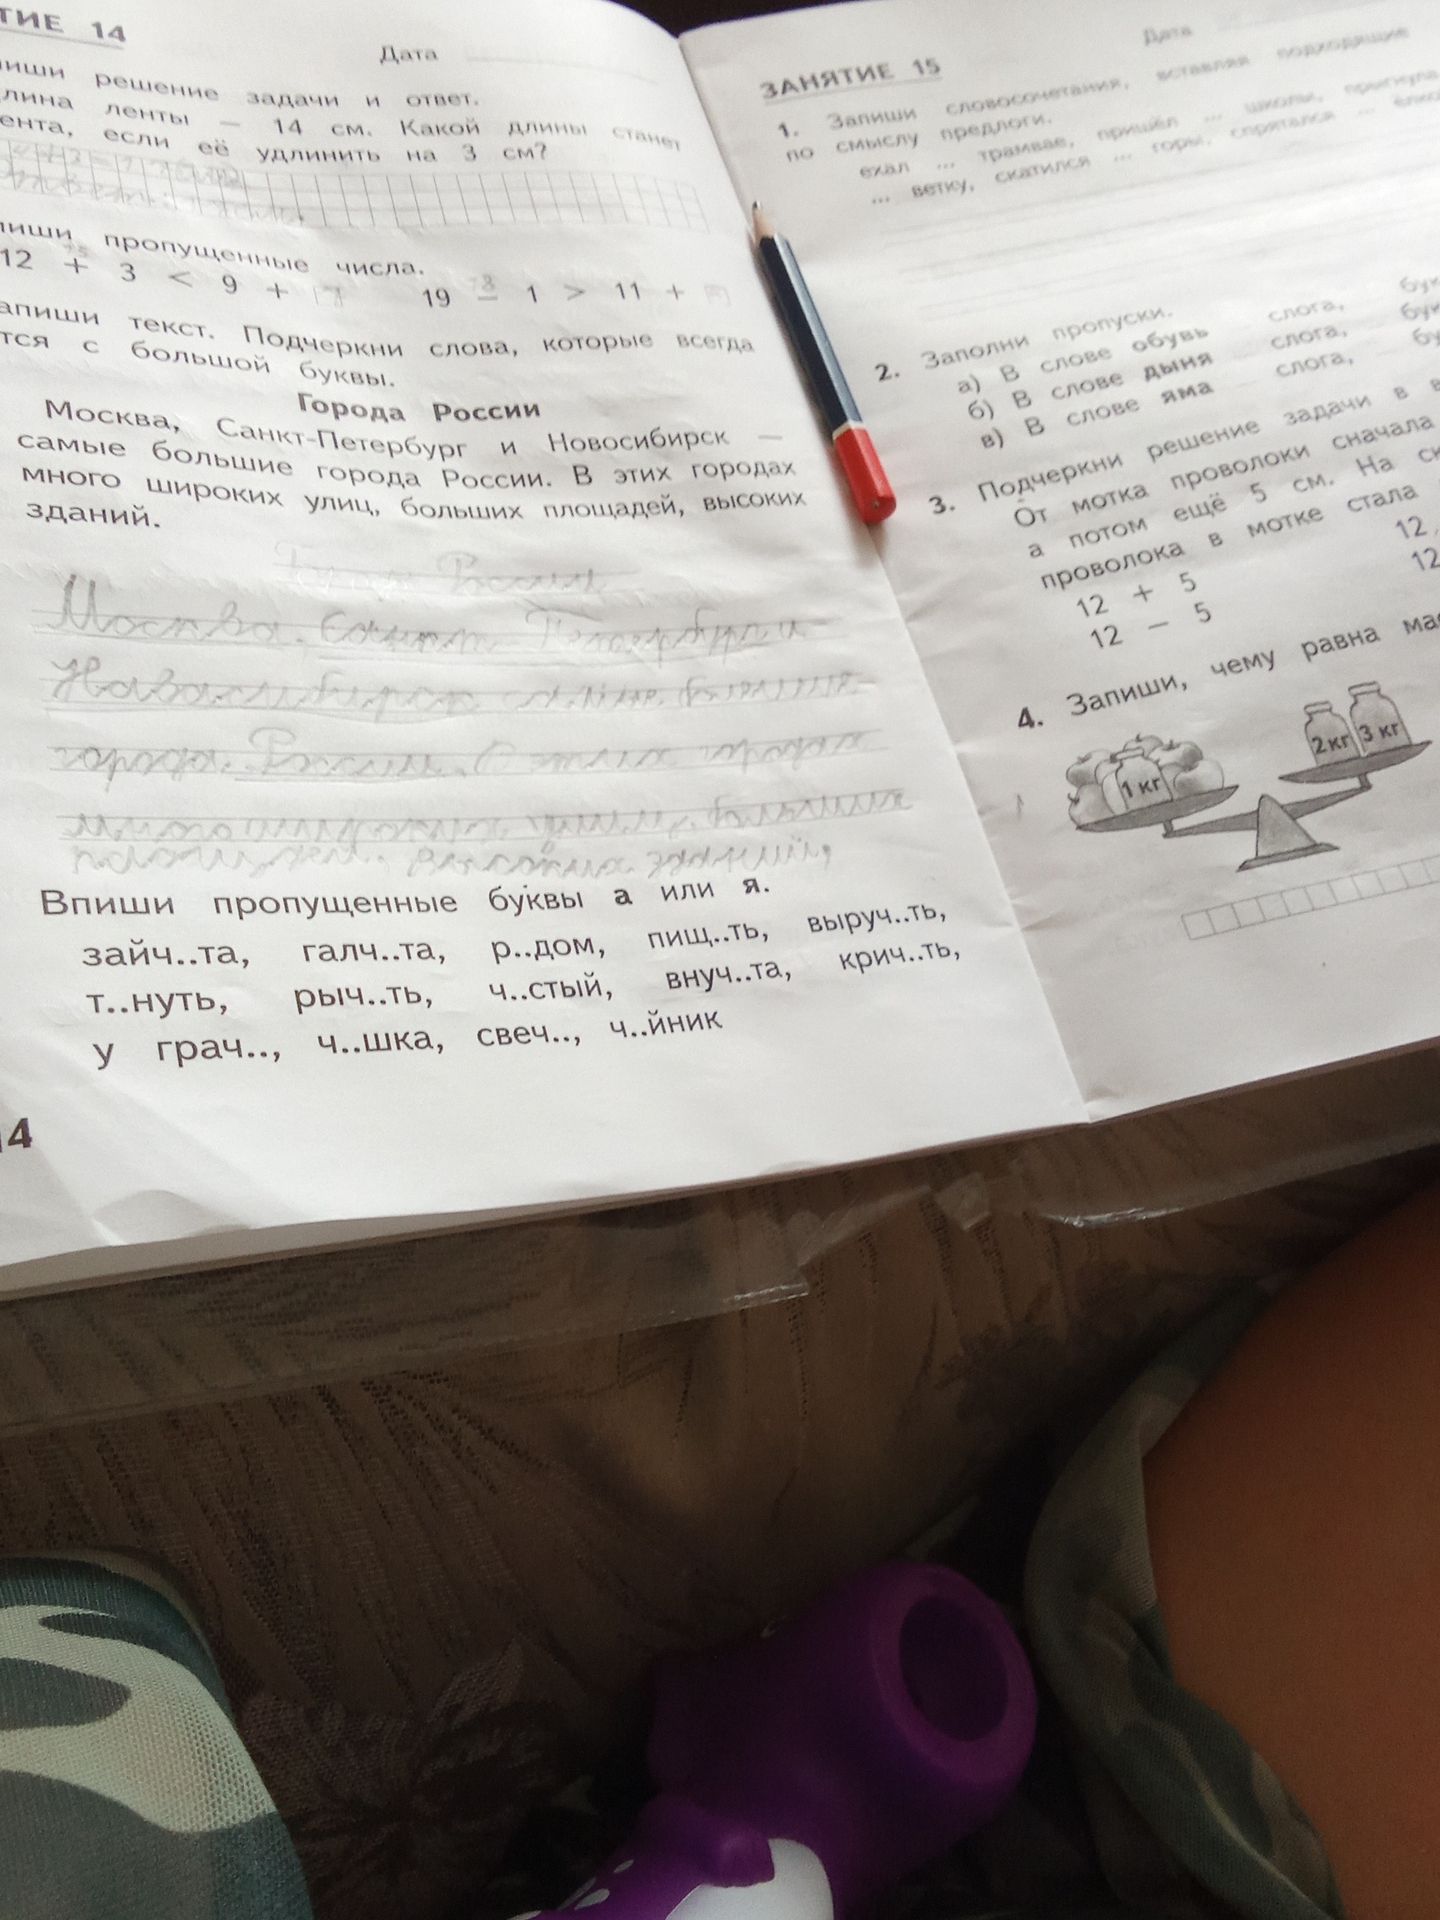 ТИЕ 14
Дата
решение задачи и ответ.
ленты — 14 см. Какой длины станет
если её удлинить на 3 см?
пропущенные числа.
12 + 3 < 9 + 19 − 1 > 11 +
текст. Подчеркни слова, которые всегда
с большой буквы.
Города России
Москва, Санкт-Петербург и Новосибирск —
самые большие города России. В этих городах
много широких улиц, больших площадей, высоких
зданий.
России
Москва. Санкт Петербург и
Навасибирск
города. России. В этих городах
много широких улиц, больших
высоких зданий,
Впиши пропущенные буквы а или я.
зайч..та, галч..та, р..дом, пищ..ть, выруч..ть,
т..нуть, рыч..ть, ч..стый, внуч..та, крич..ть,
у грач.., ч..шка, свеч.., ч..йник
14
Дата
ЗАНЯТИЕ 15
1. Запиши словосочетания, вставляя подходящие
по смыслу предлоги.
ехал ... трамвае, пришёл ... школы, прыгнула
... ветку, скатился ... горы, спрятался ...
2. Заполни пропуски.
а) В слове обувь слога,
б) В слове дыня слога,
в) В слове яма слога,
3. Подчеркни решение задачи в
От мотка проволоки сначала
а потом ещё 5 см. На
проволока в мотке стала
12 + 5 12
12 − 5 12
4. Запиши, чему равна
1 кг 2 кг 3 кг